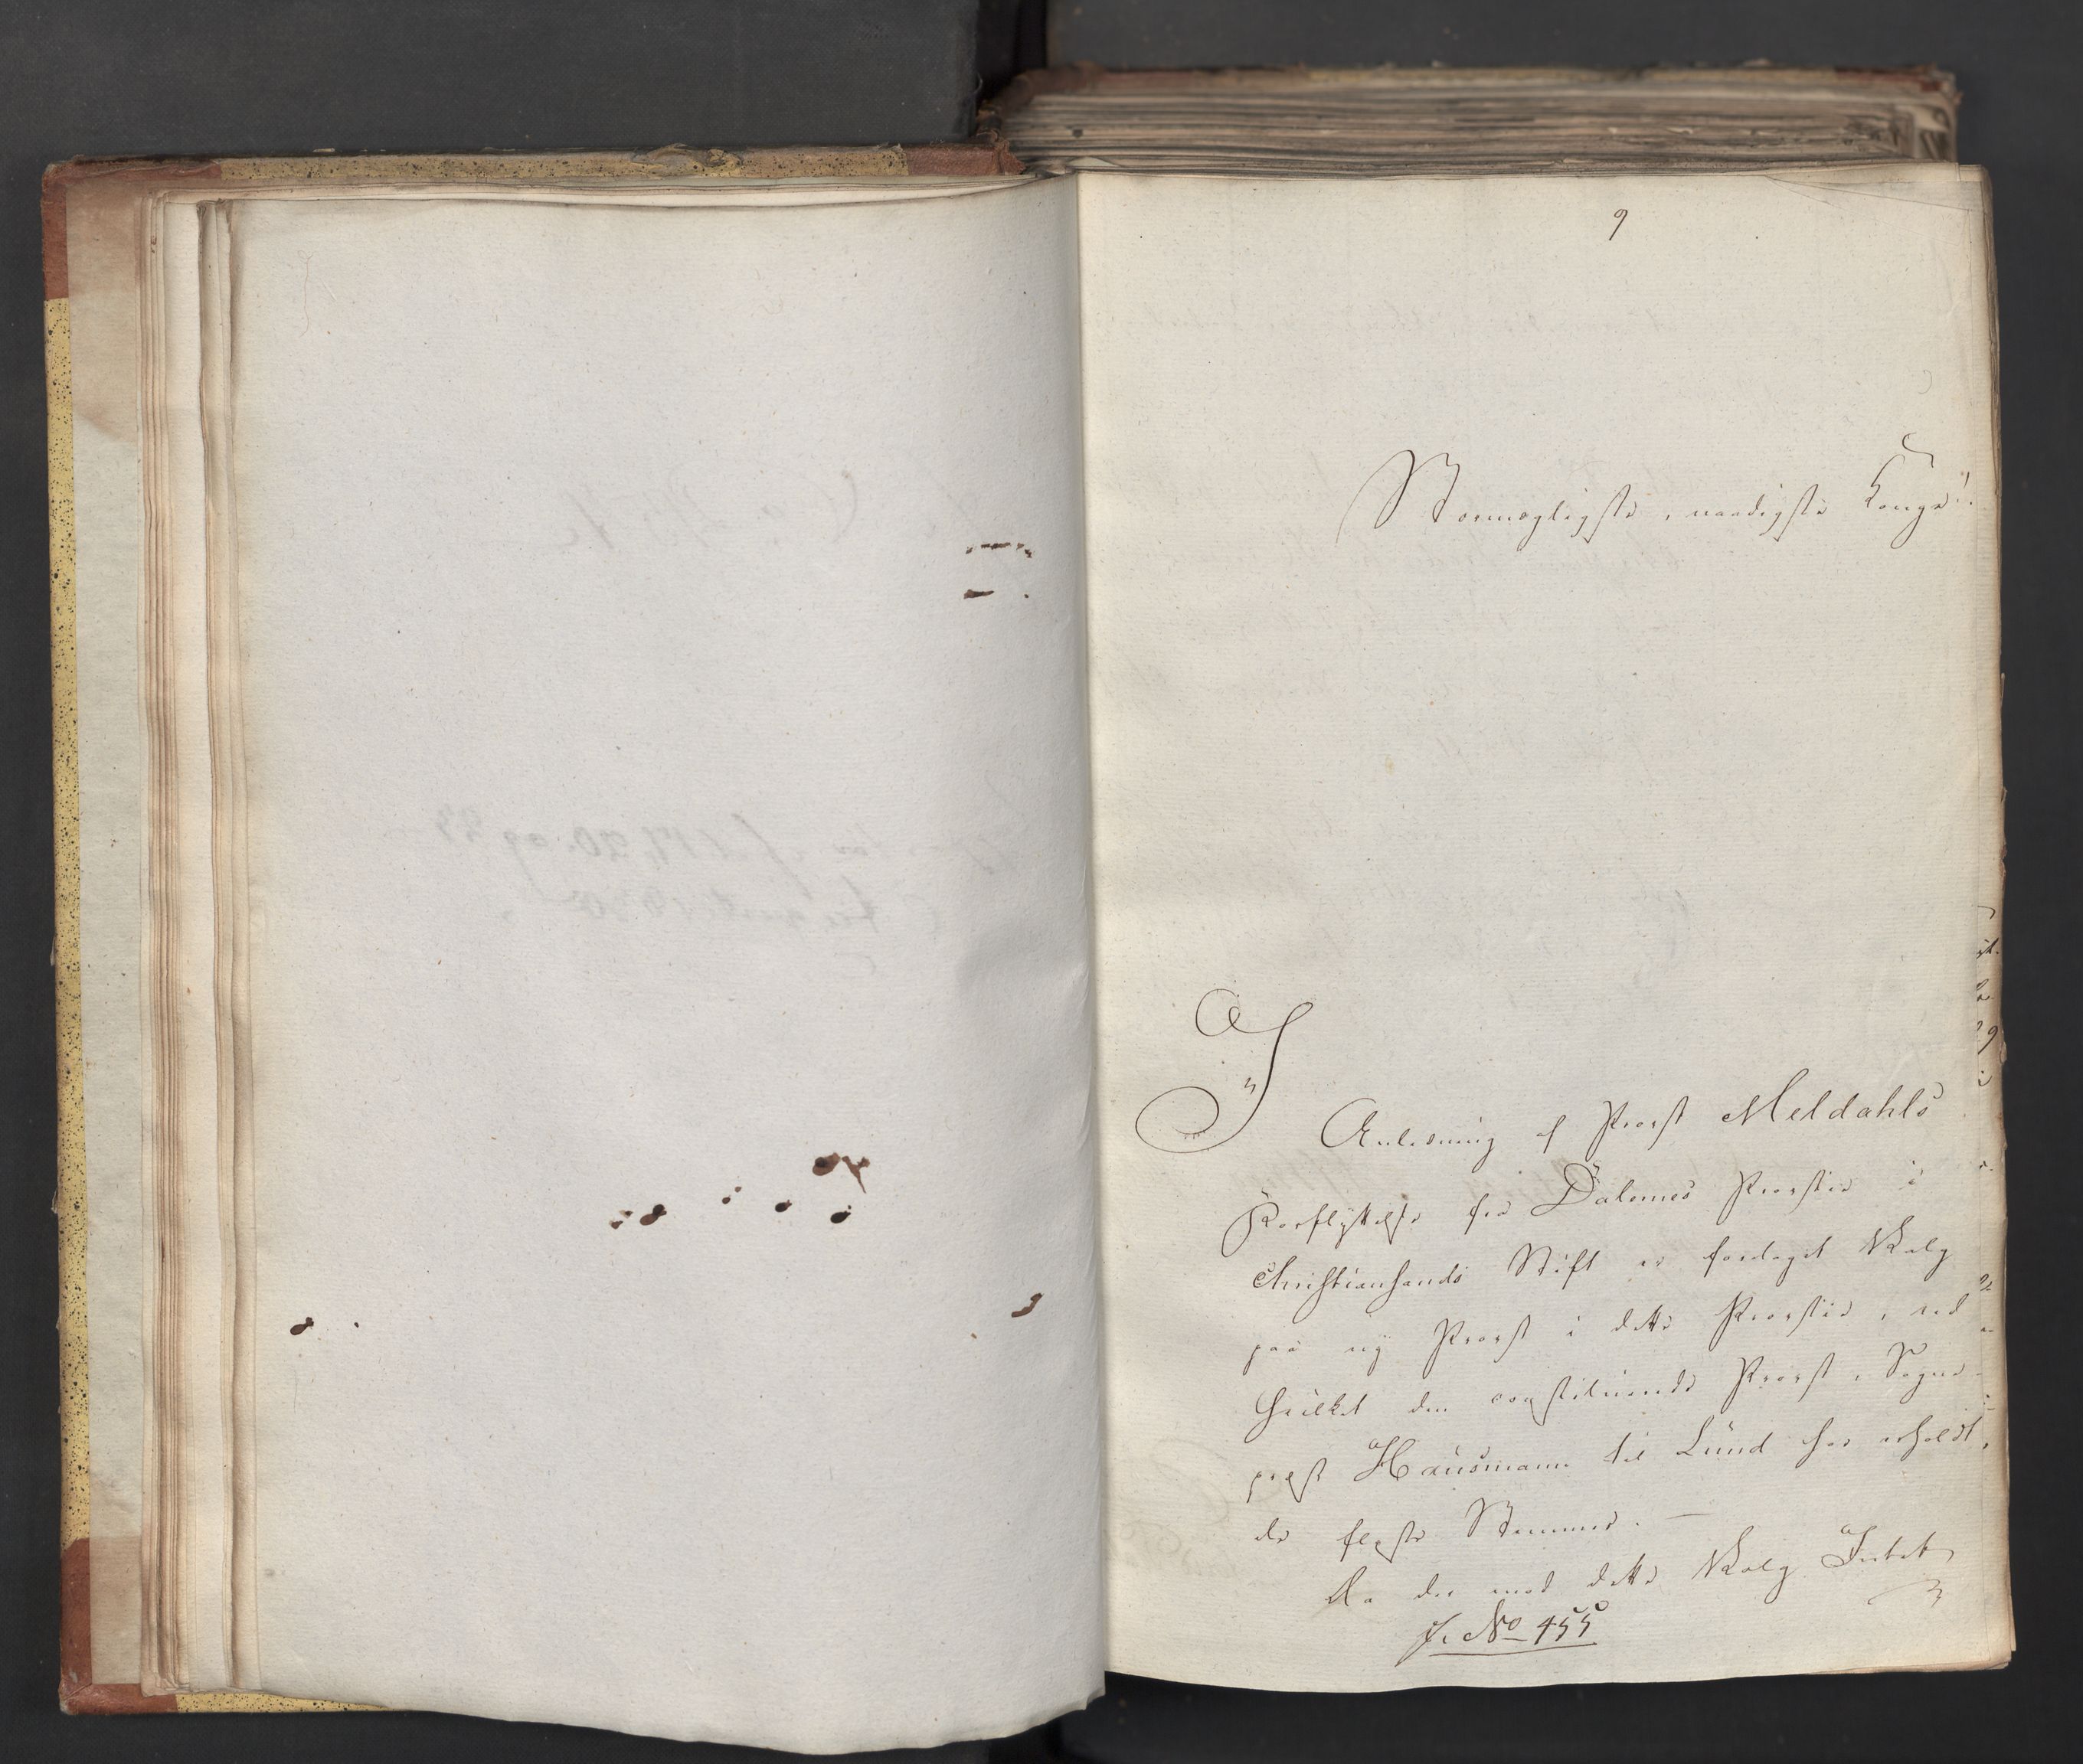 9
Stormægtigste, naadigste Konge!
I Anledning af Provst Meldahls
Forflyttelse fra Dalernes Provstie i
Christiansands Stift er foretaget Valg
paa ny Provst i dette Provstie, ved
hvilket den constituerede Provst, Sogne-
præst Hausmann til Lund har erholdt
de fleste Stemmer. —
Da der mod dette Valg Intet
J. No 455